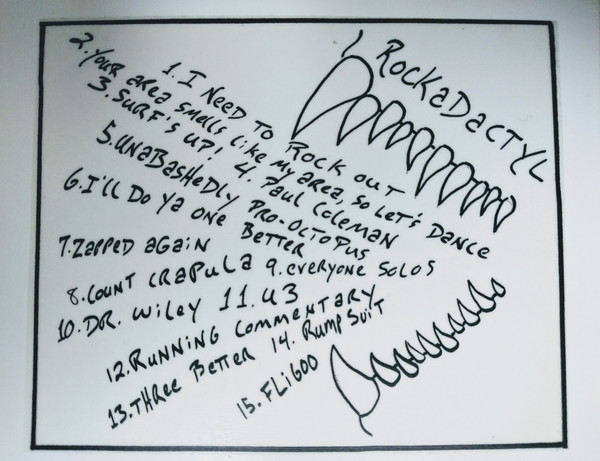 Rockadactyl
1. I NEED TO ROCK OUT
2. YOUR AREA SMELLS LIKE MY AREA, SO LET'S DANCE
3. SURF'S UP! 4. PAUL COLEMAN
5. UNABASHEDLY PRO-OCTOPUS
6. I'LL DO YA ONE BETTER
7. ZAPPED AGAIN
8. COUNT CRAPULA 9. EVERYONE SOLOS
10. DR. WILEY 11. U3
12. RUNNING COMMENTARY
13. THREE BETTER 14. RUMP SUIT
15. FLIGOO